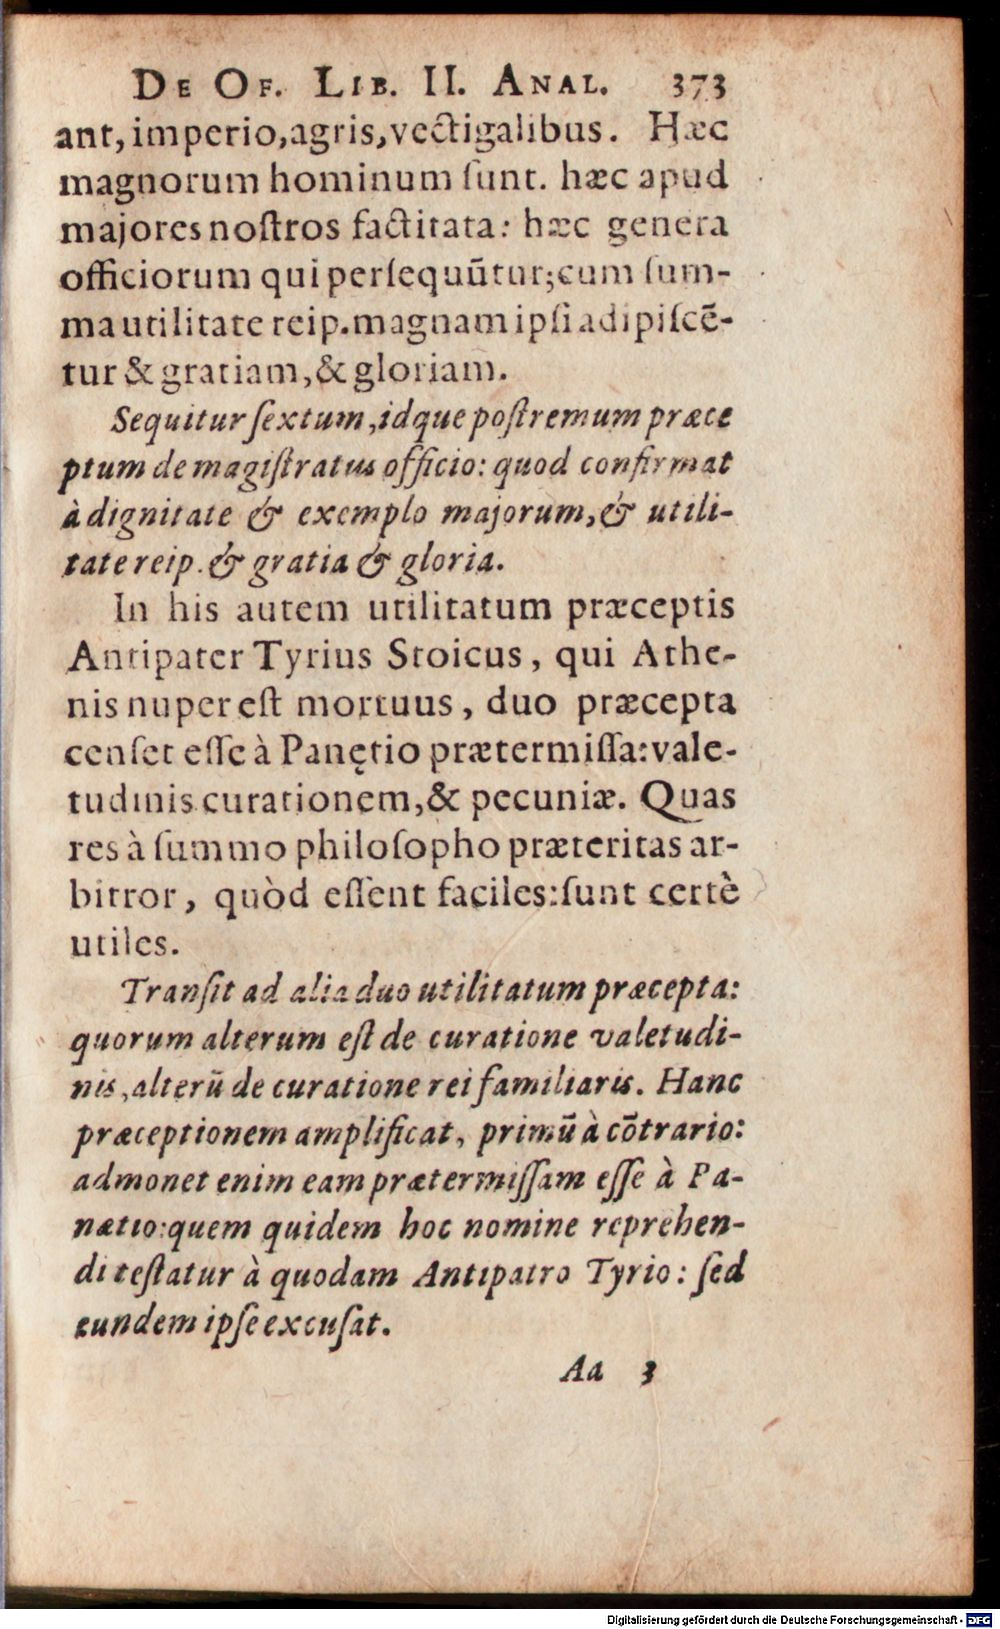 De Of. Lib. II. Anal. 373
ant, imperio,agris,vectigalibus. Hæc
magnorum hominum ſunt. hæc apud
majores noſtros factitata: hæc genera
officiorum qui perſequūtur;cum ſum-
ma utilitate reip.magnam ipſi adipiſcē-
tur & gratiam,& gloriam.
Sequitur ſextum,idque poſtremum præce
ptum de magiſtratus officio: quod confirmat
à dignitate & exemplo majorum,& utili-
tate reip. & gratia & gloria.
In his autem utilitatum præceptis
Antipater Tyrius Stoicus, qui Athe-
nis nuper eſt mortuus, duo præcepta
cenſet eſſe à Panętio prætermiſſa:vale-
tudinis curationem,& pecuniæ. Quas
res à ſummo philoſopho præteritas ar-
bitror, quòd eſſent faciles:ſunt certè
utiles.
Tranſit ad alia duo utilitatum præcepta:
quorum alterum eſt de curatione valetudi-
nis,alterū de curatione rei familiaris. Hanc
præceptionem amplificat, primū à cōtrario:
admonet enim eam prætermiſſam eſſe à Pa-
nætio:quem quidem hoc nomine reprehen-
di teſtatur à quodam Antipatro Tyrio: ſed
eundem ipſe excuſat.
Aa 3
Digitalisierung gefördert durch die Deutsche Forschungsgemeinschaft - DFG